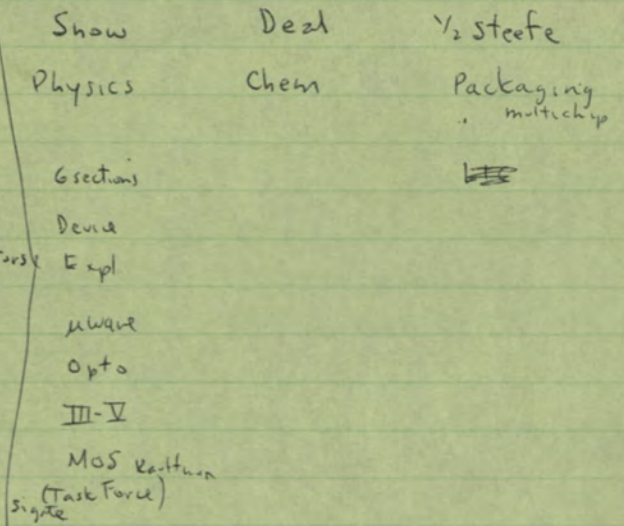 Snow Deal 1/2 Steefe
Physics Chem Packaging
multichip
6 sections
Device
Expl
μwave
Opto
III-V
MOS
(Task Force)